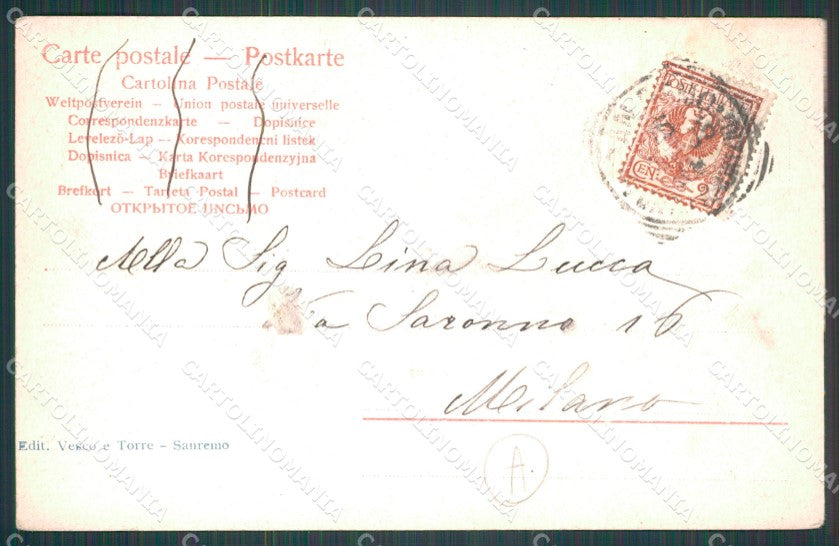 Carte postale — Postkarte
Cartolina Postale
Weltpostverein — Union postale universelle
Correspondenzkarte — Dopisnice
Levelező-Lap — Korespondencni listek
Dopisnica — Karta Korespondenzyjna
Briefkaart
Brefkort — Tarjeta Postal — Postcard
ОТКРЫТОЕ ПИСЬМО
Alla Sig Lina Lucca
Saronno 16
Milano
Edit. Vesco e Torre - Sanremo
A
CEN: 2
CARTOLINOMANIA